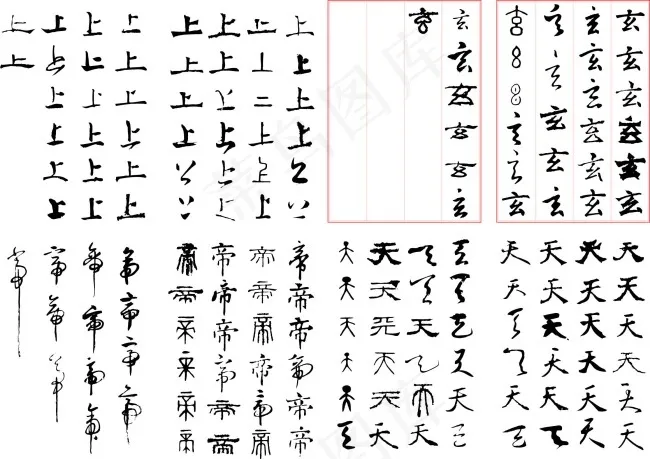 玄玄玄玄玄玄
玄玄玄玄玄玄
玄玄玄玄玄玄
玄玄玄玄玄玄
玄玄玄玄玄玄
玄
天天天天天天
天天天天天天
天天天天天天
天天天天天天
天天天天天天
天天天天天天
天天天天天天
天天天天天天
上上上上上上
上上上上上上
上上上上上上
上上上上上上
上上上上上上
上上上上上上
上上上上上上
上上
帝帝帝帝帝帝
帝帝帝帝帝帝
帝帝帝帝帝帝
帝帝帝帝帝帝
帝帝帝帝
帝帝帝帝
帝帝帝
帝